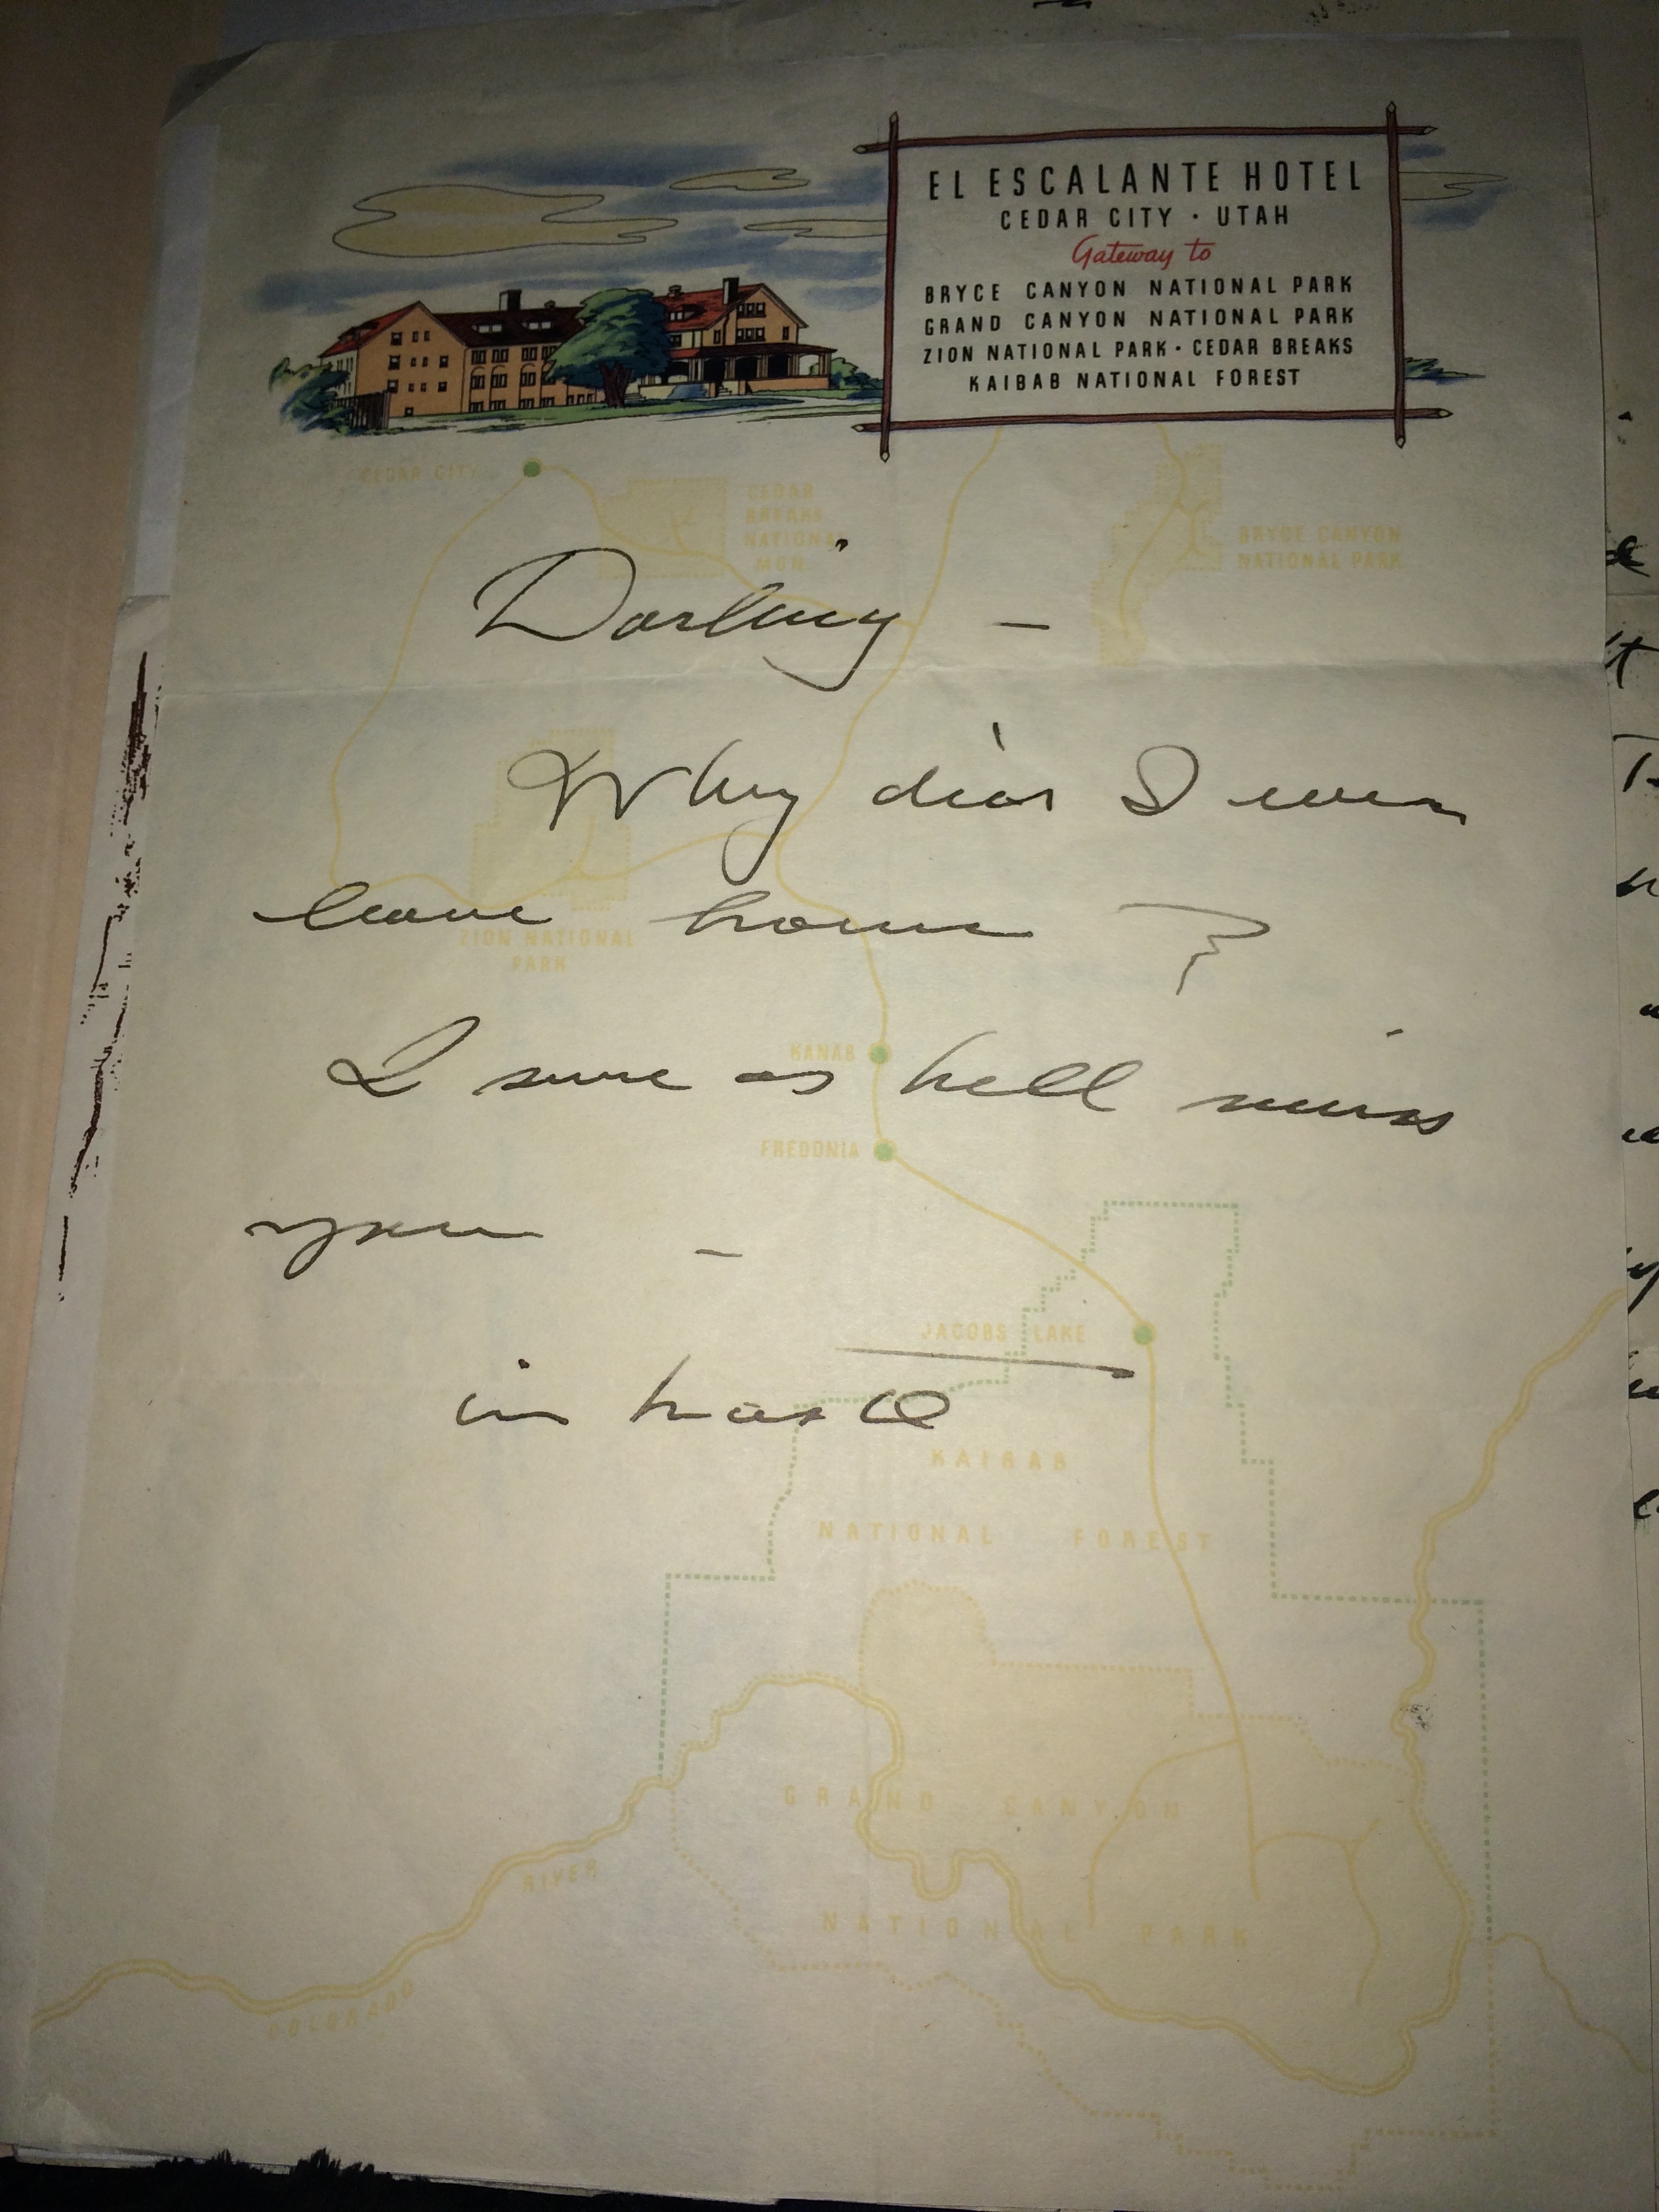 EL ESCALANTE HOTEL
CEDAR CITY · UTAH
Gateway to
BRYCE CANYON NATIONAL PARK
GRAND CANYON NATIONAL PARK
ZION NATIONAL PARK · CEDAR BREAKS
KAIBAB NATIONAL FOREST
CEDAR CITY
CEDAR
BREAKS
NATIONAL
MON.
BRYCE CANYON
NATIONAL PARK
Darling —
Why did I ever
leave home ?
ZION NATIONAL
PARK
KANAB
I sure as hell miss
FREDONIA
you —
JACOBS LAKE
in haste
KAIBAB
NATIONAL FOREST
GRAND CANYON
NATIONAL PARK
COLORADO RIVER